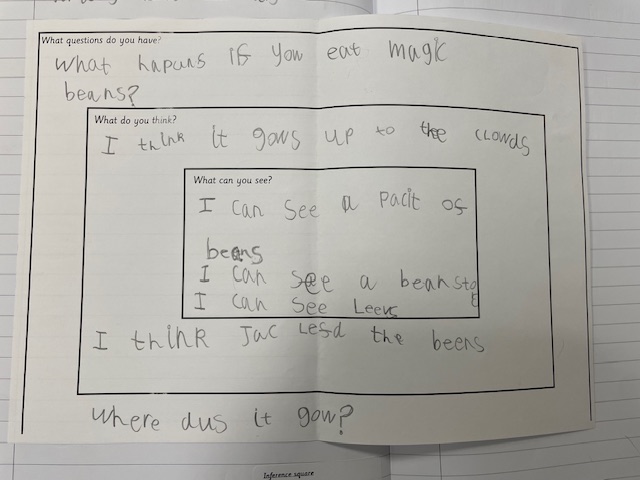 What questions do you have?
What hapuns if you eat magic
beans?
What do you think?
I think it gows up to the clowds
What can you see?
I can see a pacit of
beans
I can see a beansto
I can see Leevs
I think Jac Lefd the beens
Where dus it gow?
Inference square